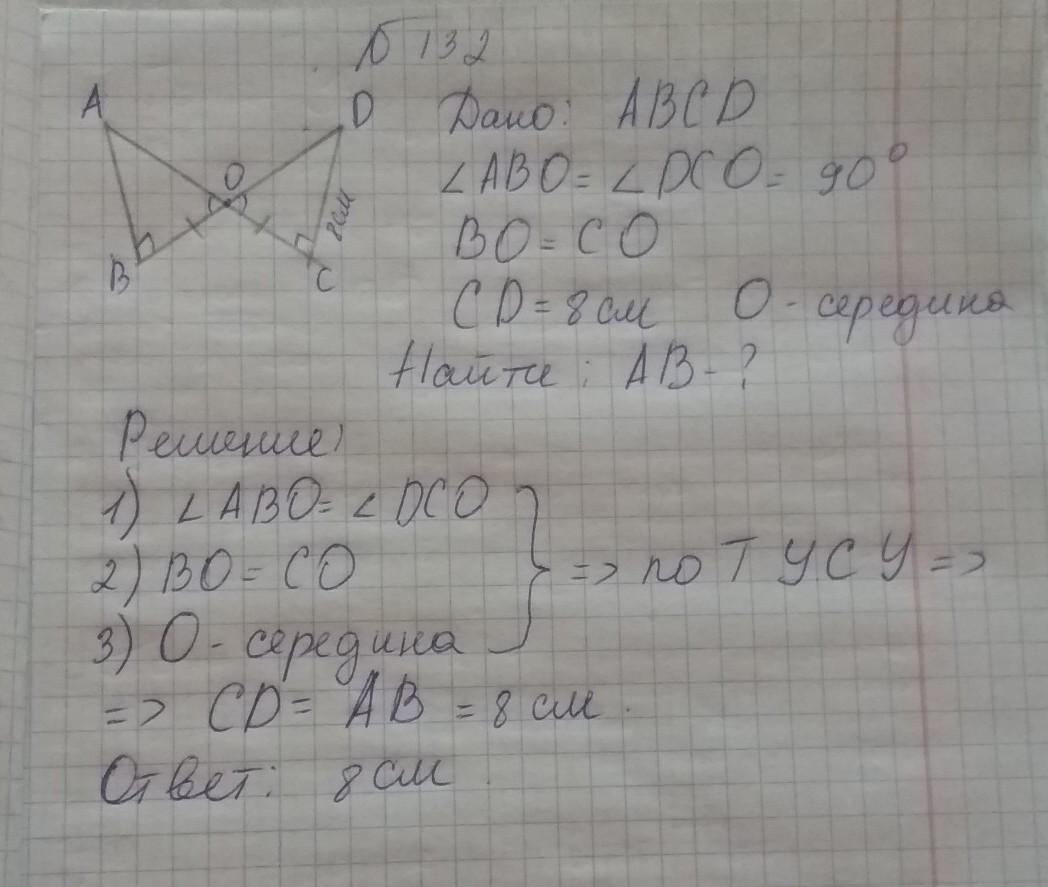 № 132
A
D
O
B
C
8 см
Дано: ABCD
∠ABO = ∠DCO = 90°
BO = CO
CD = 8 см O - середина
Найти: AB - ?
Решение:
1) ∠ABO = ∠DCO
2) BO = CO
3) O - середина
} => по Т УСУ =>
=> CD = AB = 8 см.
Ответ: 8 см.